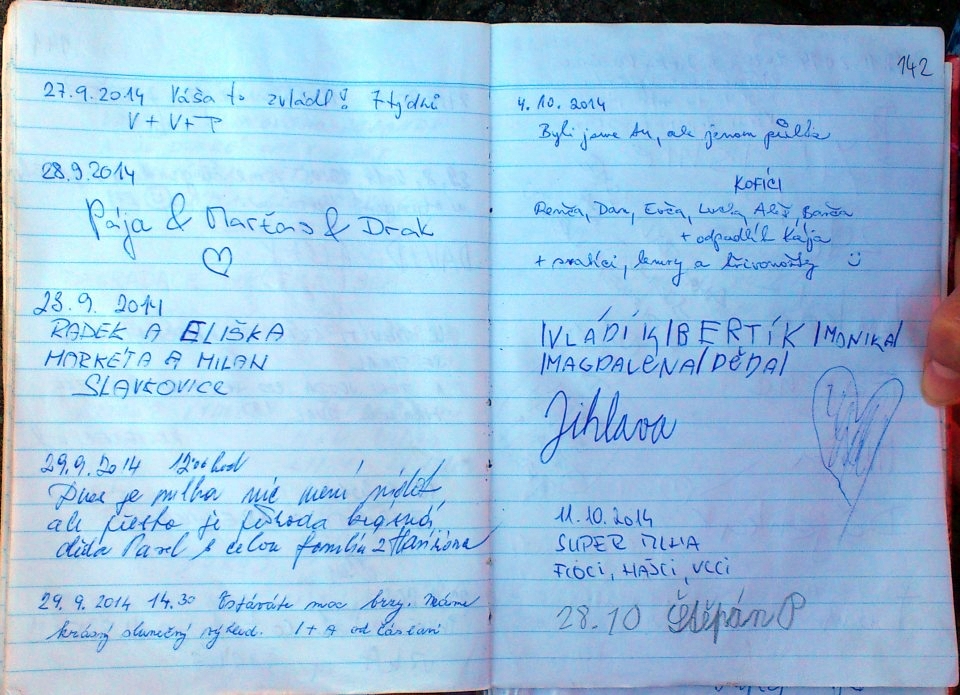 27.9.2014 Váša to zvládl! 7 týdnů
V + V + P
28.9.2014
Pája & Marťas & Drak
28.9. 2014
RADEK A ELIŠKA
MARKÉTA A MILAN
SLAVKOVICE
29.9.2014 12:00 hod
Dnes je mlha nic není vidět
ale přesto je příroda krásná
děda Pavel s celou familií z
29.9.2014 14.30 Vstáváte moc brzy. Máme
krásný slunečný výhled. I + A od Čáslavi
142
4.10.2014
Byli jsme tu, ale jenom půlka
KOFÍCI
Renča, Dan, Evča, Lucka, Aleš, Barča
+ odpadlík Kája
+ a křivonožky
/VLÁDÍK/BERTÍK/MONIKA/
/MAGDALENA/DĚDA/
Jihlava
11.10.2014
SUPER MLHA
28.10 Štěpán P